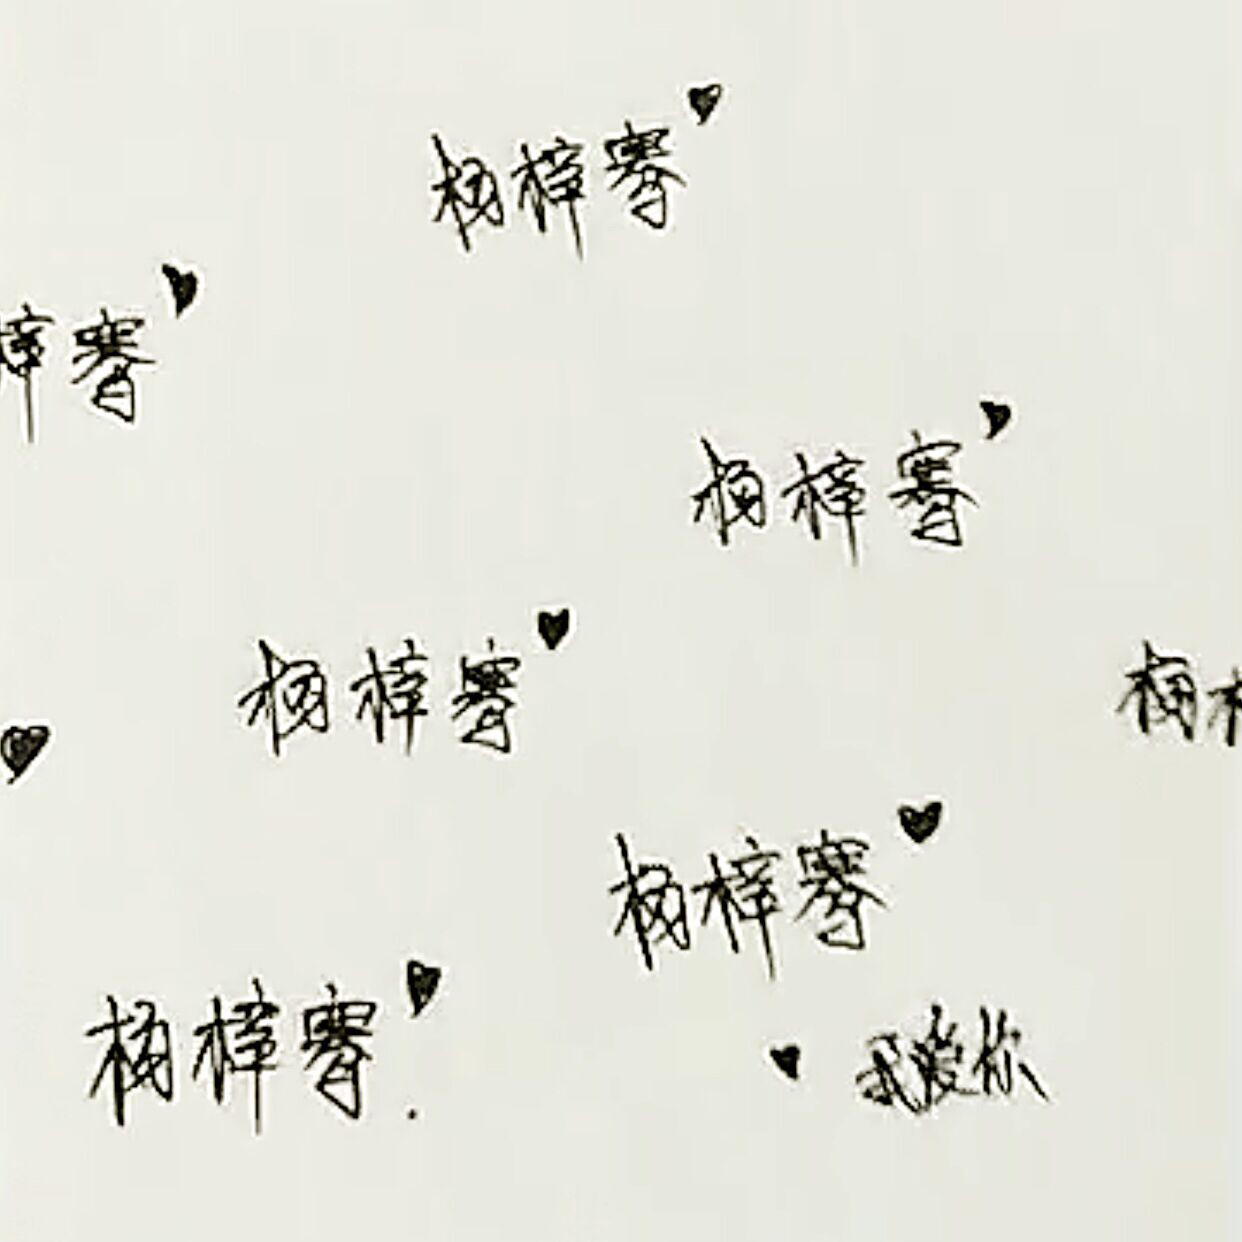 杨梓骞
梓骞
杨梓骞
杨梓骞
杨梓
杨梓骞
杨梓骞.
我爱你